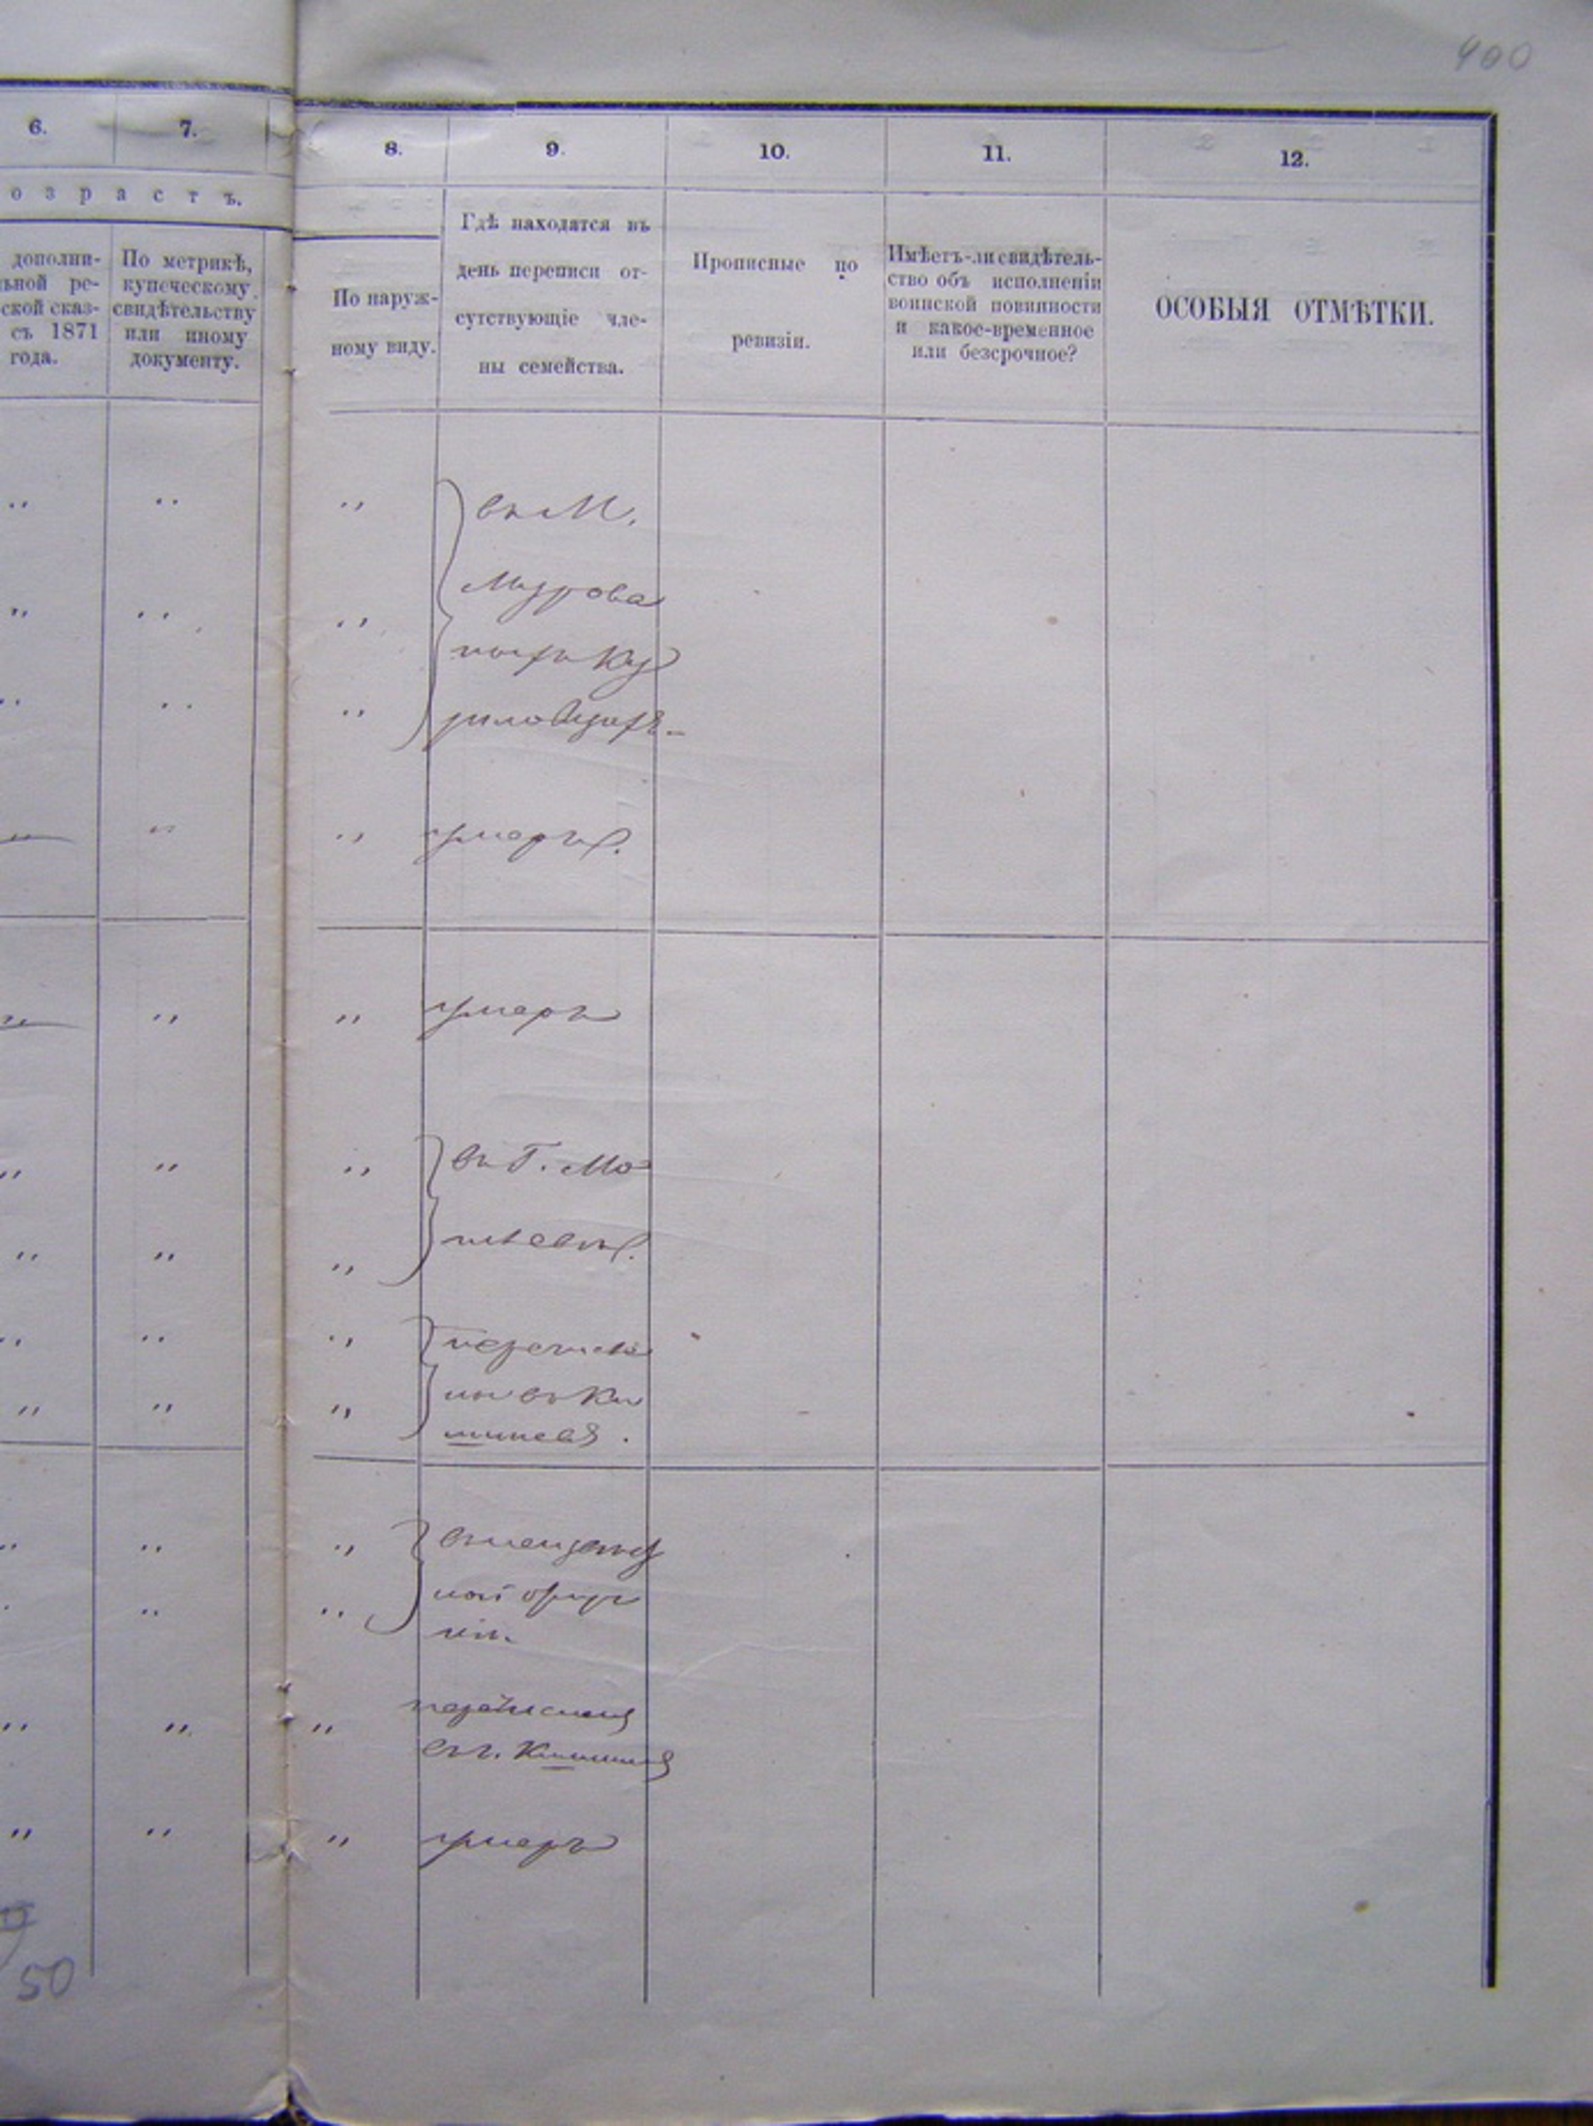 400
6.
7.
8.
9.
10.
11.
12.
озрастъ.
дополни-
ьной ре-
ской сказ-
съ 1871
года.
По метрикѣ,
купеческому
свидѣтельству
или иному
документу.
По наруж-
ному виду.
Гдѣ находятся въ
день переписи от-
сутствующіе чле-
ны семейства.
Прописные по
ревизіи.
Имѣетъ-ли свидѣтель-
ство объ исполненіи
воинской повинности
и какое-временное
или безсрочное?
ОСОБЫЯ ОТМѢТКИ.
въ М.
Мурова
умеръ.
умеръ
въ Г. Мо
гилевѣ.
перечисле
ны въ Ки
шиневѣ.
ной
въ г.
умеръ
50